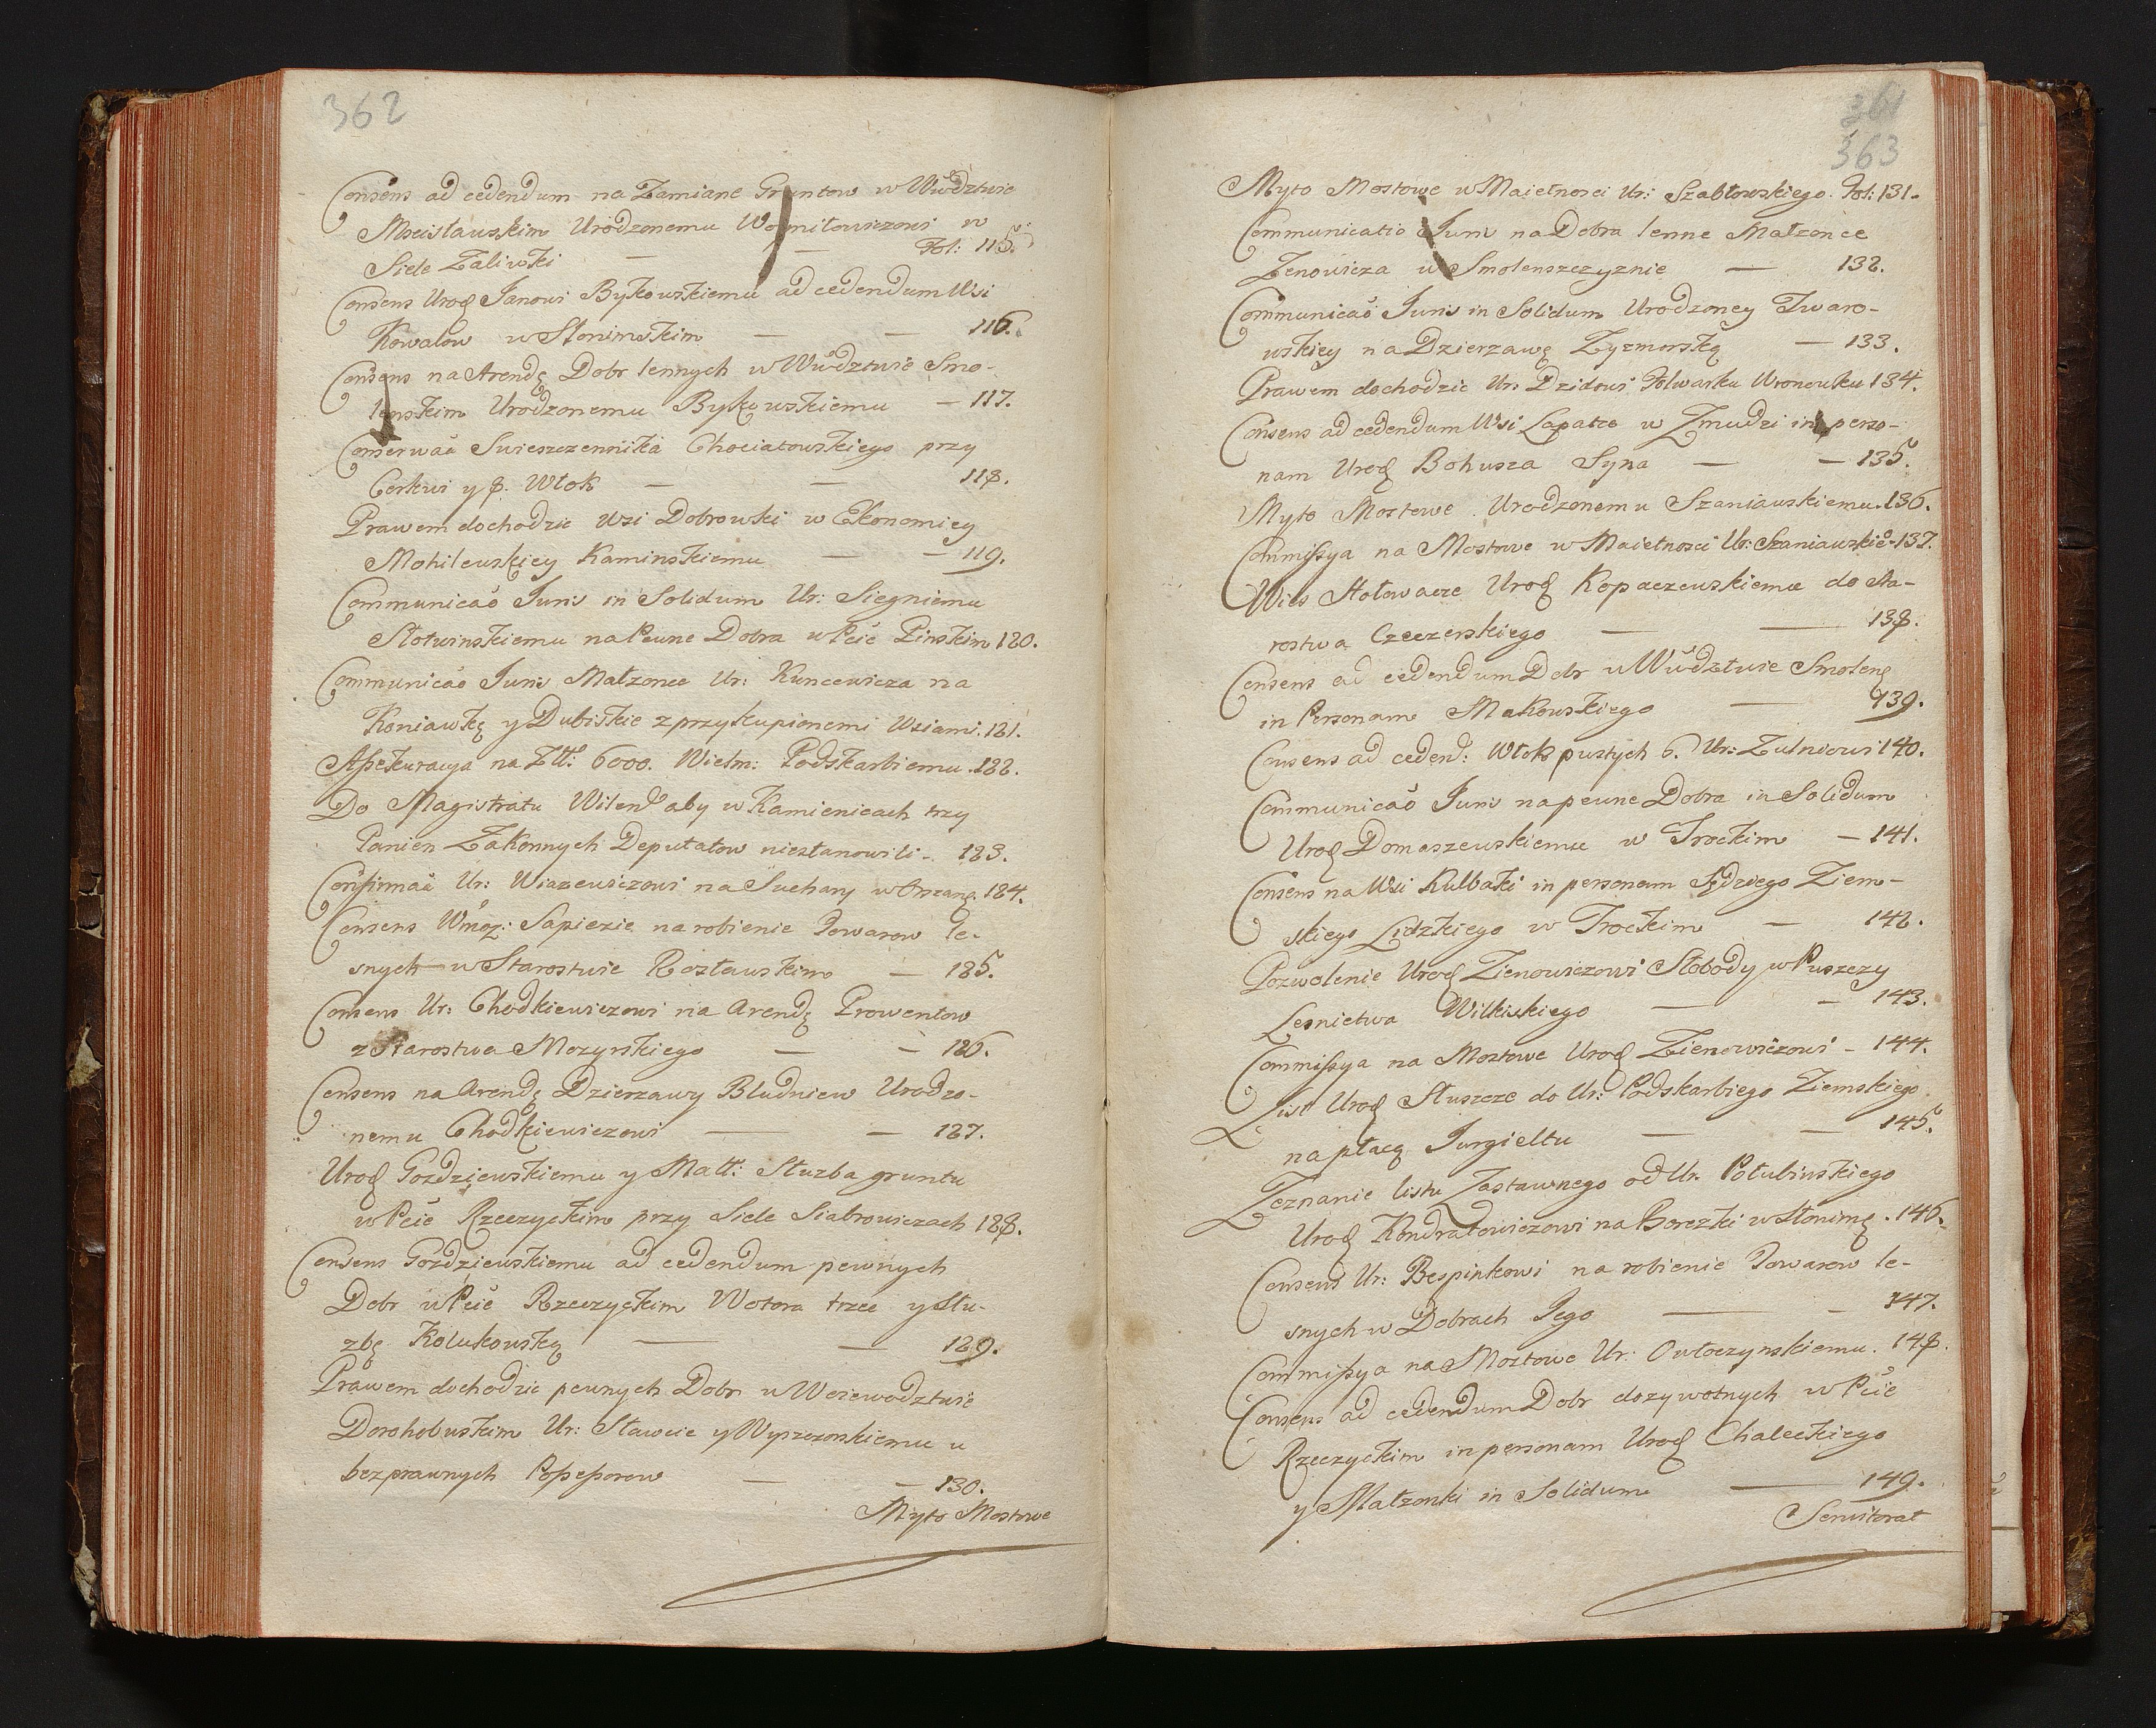 362
Consens ad cedendum na Zamiane Gruntow w Wwdztwie
Mscisławskim Urodzonemu Woyniłowiczowi w
Siele Zaliwki — — Fol: 115.
Consens Urod Janowi Bykowskiemu ad cedendum Wsi
Kowalow w Słonimskim — — 116.
Consens na Arendę Dobr lennych w Wwdztwie Smo-
lenskim Urodzonemu Bykowskiemu — 117.
Conserwać Swieszczennika Chociatowskiego przy
Cerkwi y 8. Włok — — 118.
Prawem dochodzic Wsi Dobrowki w Ekonomiey
Mohilewskiey Kaminskiemu — — 119.
Communicaó Juris in Solidum Ur: Siegniemu
Słotwinskiemu na Pewne Dobra w Pcie Pinskim 120.
Communicaó Juris Małzonce Ur: Kuncewicza na
Koniawkę y Dubiskie z przykupionemi Wsiami. 121.
Assekuracya na Złł: 6000. Wielm: Podskarbiemu. 122.
Do Magistratu Wilen aby w Kamienicach trzy
Panien Zakonnych Deputatow niestanowili. 123.
Confirmać Ur: Wiazewiczowi na Suchary w Orszang. 124.
Consens Wmoz: Sapiezie na robienie Towarow le-
snych w Starostwie Rosławskim — 125.
Consens Ur: Chodkiewiczowi na Arendę Prowentow
z Starostwa Mozyrskiego — — 126.
Consens na Arendę Dzierzawy Bludniew Urodzo-
nemu Chodkiewiczowi — — 127.
Urod Gozdziewskiemu y Małł: Słuzba gruntu
w Pcie Rzeczyckim przy Siele Siabrowiczach 128.
Consens Gozdziewskiemu ad cedendum pewnych
Dobr w Pcie Rzeczyckim Wotora trzec y Słu-
zbę Kolukowską — — 129.
Prawem dochodzic pewnych Dobr w Woiewodztwie
Dorohobuskim Ur: Sławcie y Wyszczorskiemu u
bezprawnych Possessorow — — 130.
Myto Mostowe
361
363
Myto Mostowe w Maiętnosci Ur: Szabłowskiego. Fol: 131.
Communicatio Juris na Dobra lenne Małzonce
Zenowicza w Smolenszczyznie — 132.
Communicaó Juris in Solidum Urodzoney Twaro-
wskiey na Dzierzawę Zyzmorską — 133.
Prawem dochodzic Ur: Dzidowi Folwarku Wronowku 134.
Consens ad cedendum Wsi Lapatce w Zmudzi in perso-
nam Urod Bohusza Syna — — 135.
Myto Mostowe Urodzonemu Szaniawskiemu. 136.
Commissya na Mostowe w Maietnosci Ur: Szaniawskieo. 137.
Wies Stołowacze Urod Kopaczewskiemu do Sta-
rostwa Czeczerskiego — — 138.
Consens ad cedendum Dobr w Wwdztwie Smolen
in Personam Makowskiego — 139.
Consens ad cedend: Włok pustych 6. Ur: Zulniowi 140.
Communicaó Juris na pewne Dobra in Solidum
Urod Domaszewskiemu w Trockim — 141.
Consens na Wsi Kulbaki in personam Sędziego Ziem-
skiego Lidzkiego w Trockim — 142.
Pozwolenie Urod Zienowiczowi Słobody w Puszczy
Lesnictwa Wilkiskiego — — 143.
Commissya na Mostowe Urod Zienowiczowi — 144.
List Urod Słuszcze do Ur: Podskarbiego Ziemskiego
na płacę Jurgieltu — — 145.
Zeznanie listu Zastawnego od Ur. Połubinskiego
Urod Kondratowiczowi na Boreczki w Słonimę. 146.
Consens Ur: Bespinkowi na robienie Towarow le-
snych w Dobrach Jego — — 147.
Commissya na Mostowe Ur: Owłoczynskiemu. 148.
Consens ad cedendum Dobr dozywotnych w Pcie
Rzeczyckim in personam Urod Chaleckiego
y Małzonki in Solidum — 149.
Servitorat